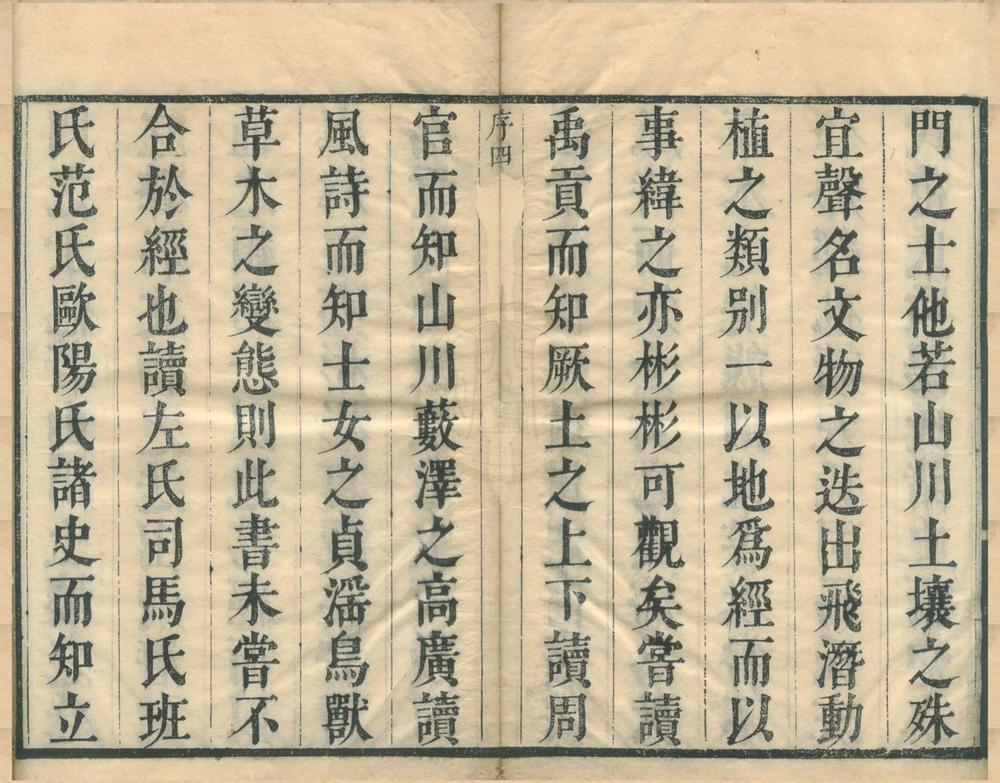 門之士他若山川土壤之殊
宜聲名文物之迭出飛潛動
植之類别一以地爲經而以
事緯之亦彬彬可觀矣嘗讀
禹貢而知厥土之上下讀周
序四
官而知山川藪澤之高廣讀
風詩而知士女之貞滛鳥獸
草木之變態則此書未嘗不
合於經也讀左氏司馬氏班
氏范氏歐陽氏諸史而知立